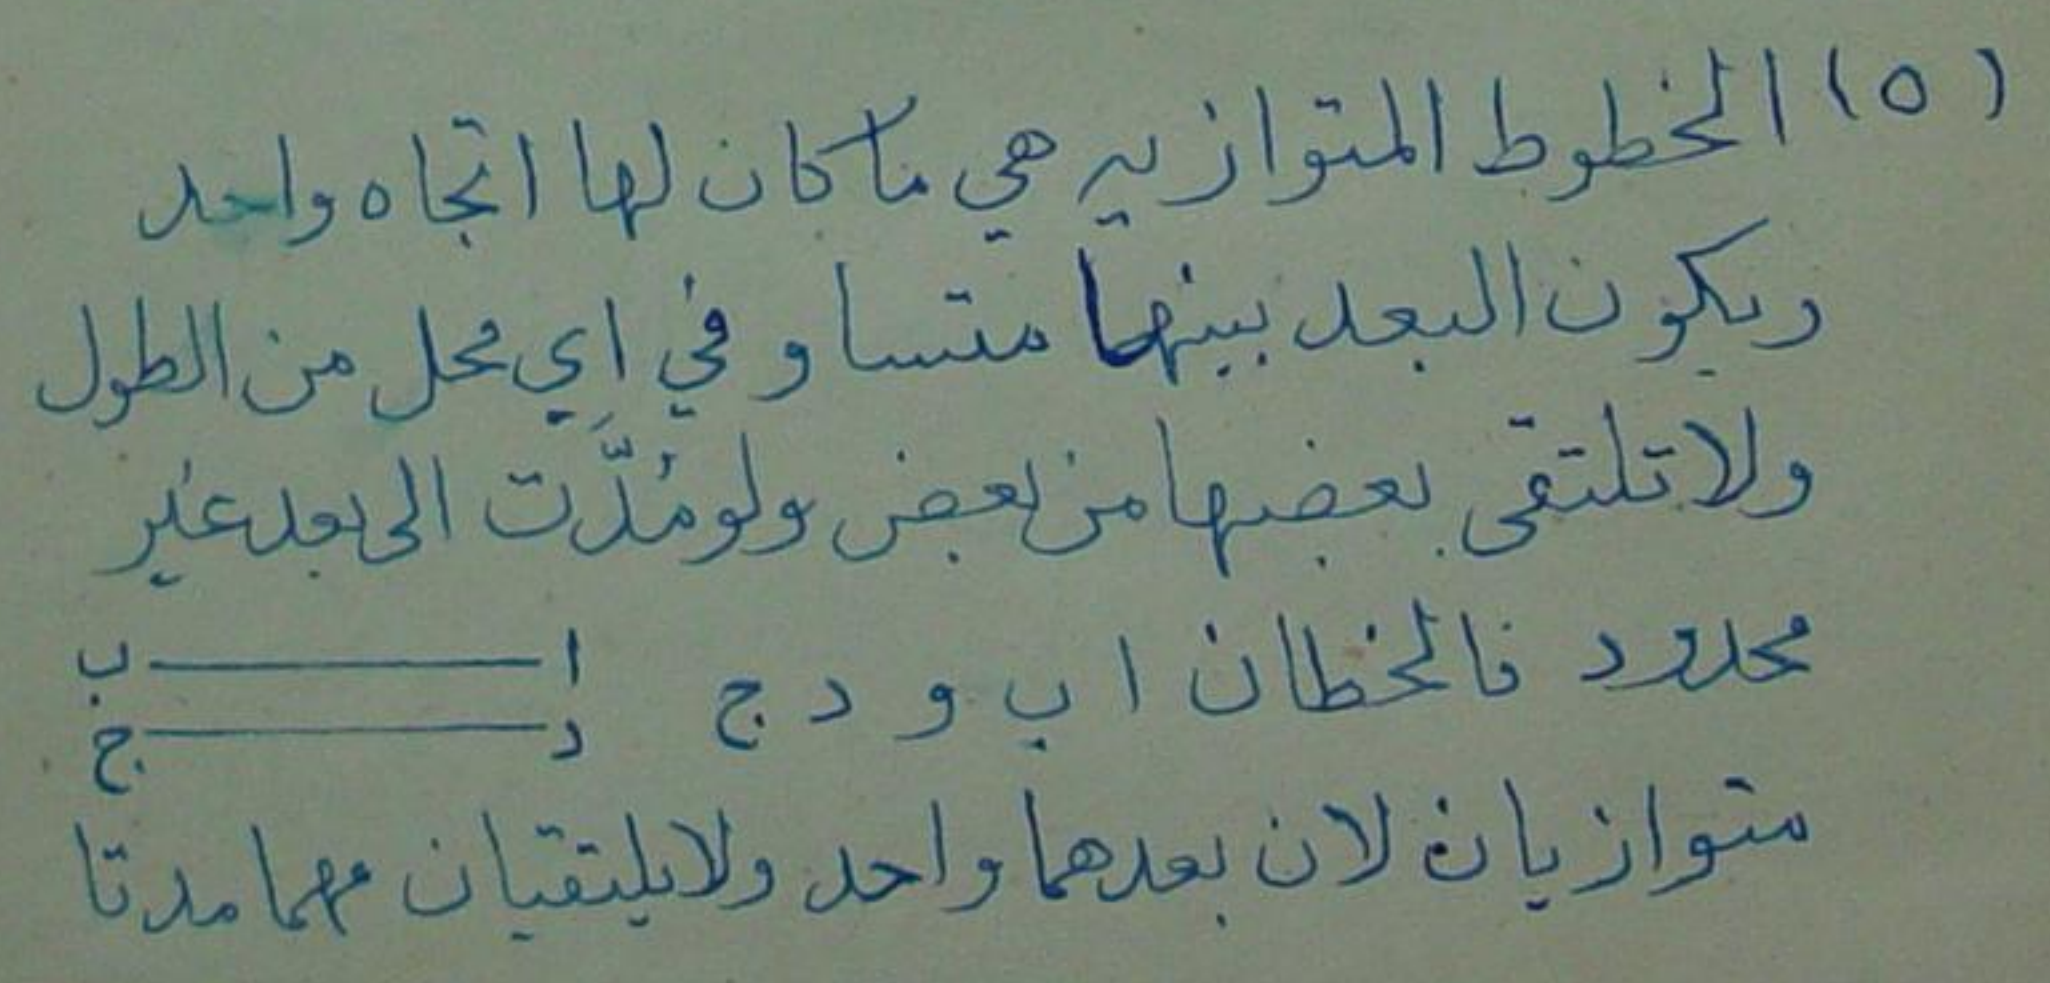 (٥) الخطوط المتوازيه هي ما كان لها اتجاه واحد
ويكون البعد بينهما متساو في اي محل من الطول
ولا تلتقى بعضها من بعض ولو مُدَّت الى بعد غير
محدود فالخطان ا ب و د ج
ا ب
د ج
متوازيان لان بعدهما واحد ولا يلتقيان مهما مدتا